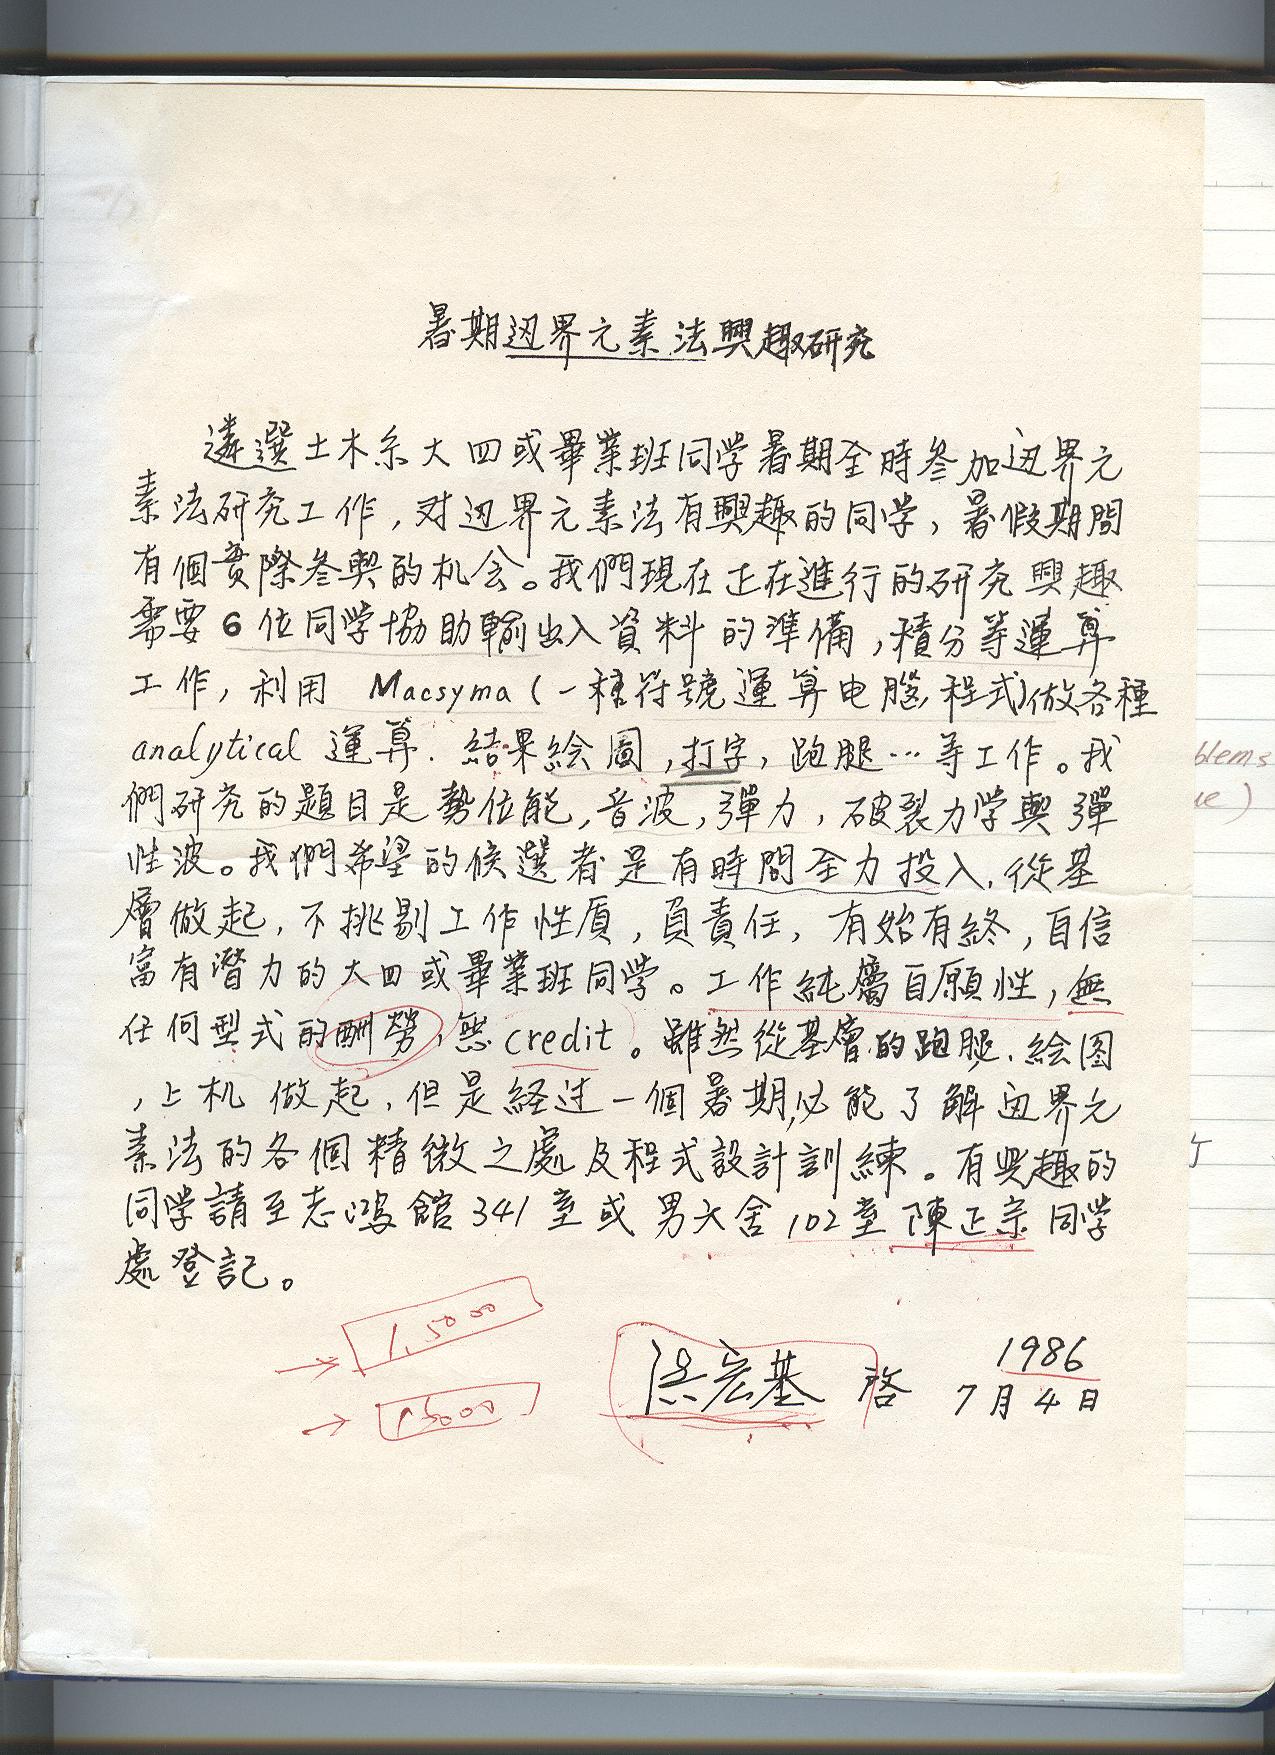 暑期边界元素法興趣研究
遴選土木系大四或畢業班同学暑期全時参加边界元
素法研究工作,对边界元素法有興趣的同学,暑假期間
有個實際参與的机会。我們現在正在進行的研究興趣
需要6位同学協助輸出入資料的準備,積分等運算
工作,利用 Macsyma (一種符號運算电腦程式)做各種
analytical 運算.結果絵圖,打字,跑腿…等工作。我
們研究的題目是勢位能,音波,彈力,破裂力学與彈
性波。我們希望的候選者是有時間全力投入,從基
層做起,不挑剔工作性质,負責任,有始有終,自信
富有潛力的大四或畢業班同学。工作純屬自願性,無
任何型式的酬勞,無credit。雖然從基層的跑腿.絵图
,上机做起,但是経过一個暑期,必能了解边界元
素法的各個精微之處及程式設計訓練。有興趣的
同学請至志鴻館341室或男大舍102室陳正宗同学
處登記。
15000
15000
洪宏基 啓 1986
7月4日
blems
ue)